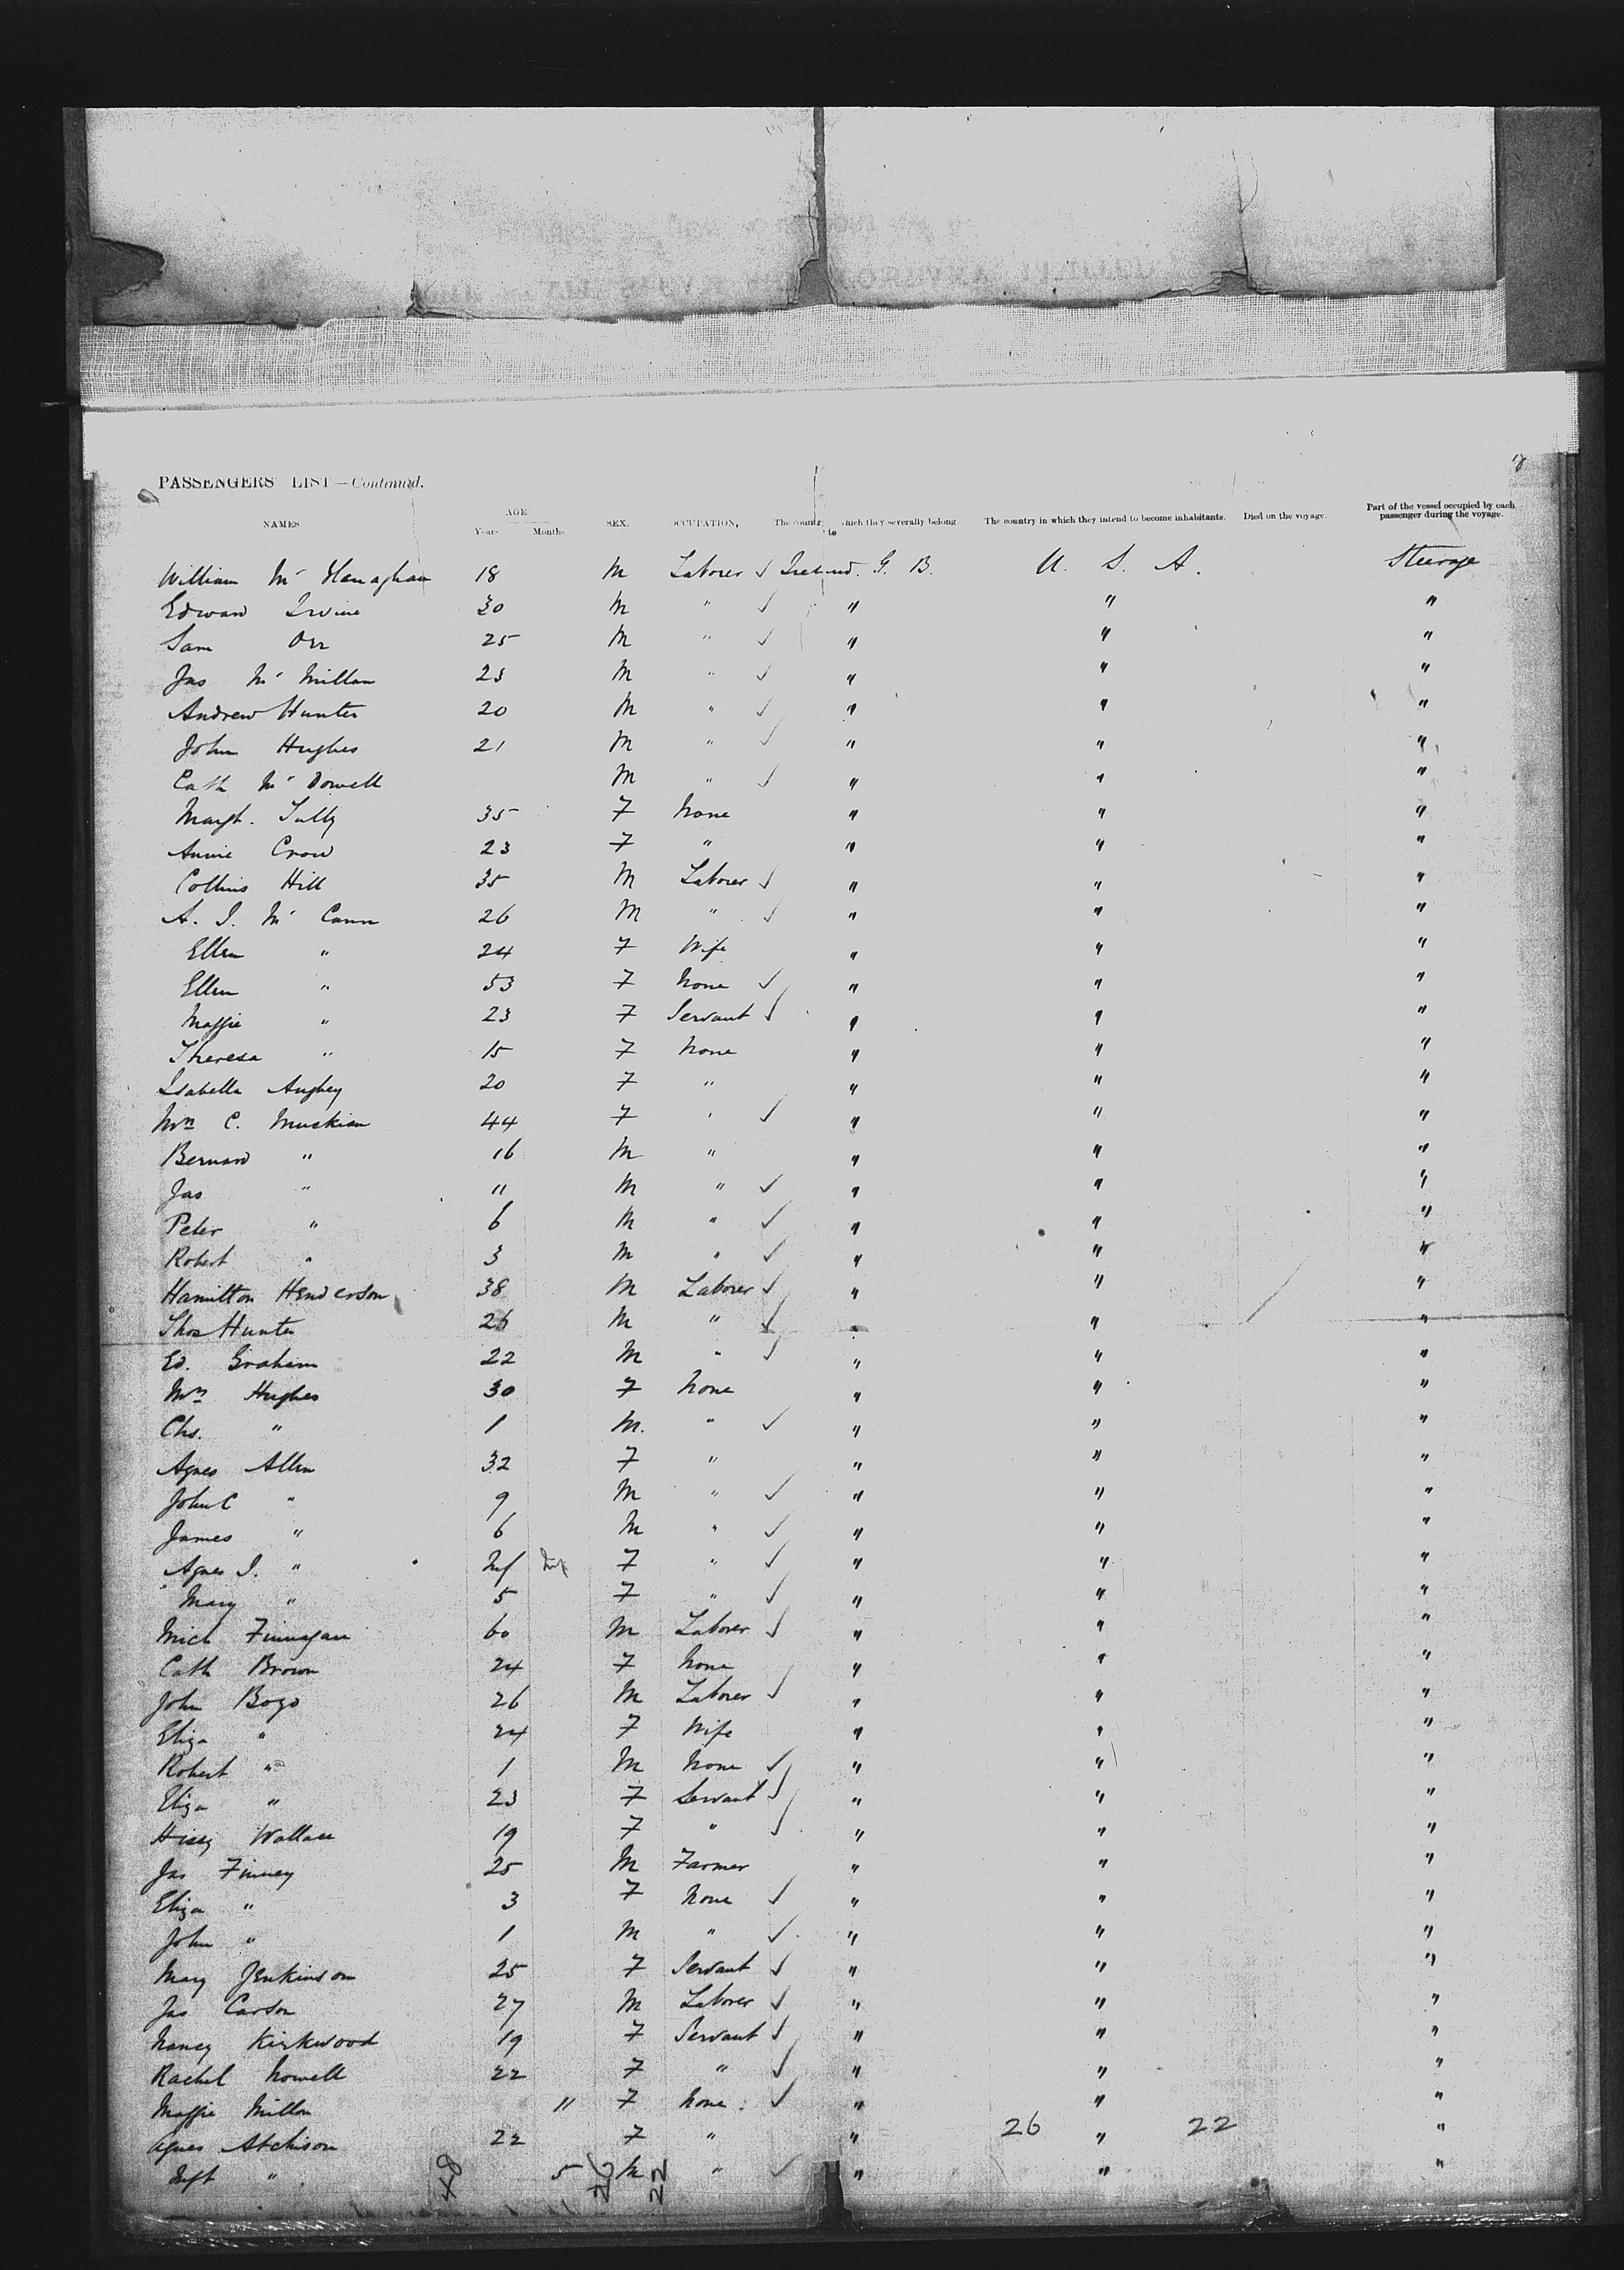 PASSENGERS' LIST—Continued.
NAMES. AGE. Years Months SEX. OCCUPATION, The country which they severally belong to The country in which they intend to become inhabitants. Died on the voyage. Part of the vessel occupied by each passenger during the voyage.
William Mc 18 M Laborer ✓ Ireland. G. B. U. S. A. Steerage
Edward Irvine 30 M " ✓ " " "
Sam Orr 25 M " ✓ " " "
Jas Mc Millan 23 M " ✓ " " "
Andrew Hunter 20 M " ✓ " " "
John Hughes 21 M " ✓ " " "
Cath Mc Dowell M " ✓ " " "
Margt. Tully 35 F None " " "
Annie Crow 23 F " " " "
Collins Hill 35 M Laborer ✓ " " "
A. J. Mc Cann 26 M " ✓ " " "
Ellen " 24 F Wife " " "
Ellen " 53 F None ✓ " " "
Maggie " 23 F Servant ✓ " " "
Theresa " 15 F None " " "
Isabella Aughey 20 F " " " "
Mrs C. Muskian 44 F " ✓ " " "
Bernard " 16 M " " " "
Jas " 11 M " ✓ " " "
Peter " 6 M " ✓ " " "
Robert " 3 M " ✓ " " "
Hamilton Henderson 38 M Laborer ✓ " " "
Thos Hunter 26 M " ✓ " " "
Ed. Graham 22 M " ✓ " " "
Mrs Hughes 30 F None " " "
Chs. " 1 M. " ✓ " " "
Agnes Allen 32 F " " " "
John C " 9 M " ✓ " " "
James " 6 M " ✓ " " "
Agnes J. " Inf Inf F " ✓ " " "
Mary " 5 F " ✓ " " "
Mich Finnagan 60 M Laborer ✓ " " "
Cath Brown 24 F None " " "
John Bogo 26 M Laborer ✓ " " "
Eliza " 24 F Wife " " "
Robert " 1 M None ✓ " " "
Eliza " 23 F Servant ✓ " " "
Wallace 19 F " ✓ " " "
Jas Finney 25 M Farmer " " "
Eliza " 3 F None ✓ " " "
John " 1 M " ✓ " " "
Mary Jenkinson 25 F Servant ✓ " " "
Jas Carson 27 M Laborer ✓ " " "
Nancy Kirkwood 19 F Servant ✓ " " "
Rachel Nowell 22 F " ✓ " " "
Maggie Millon 11 F None. ✓ " " "
Agnes Atchison 22 F " " 26 " 22 "
Inft " 5 M " ✓ " " "
48 26 22